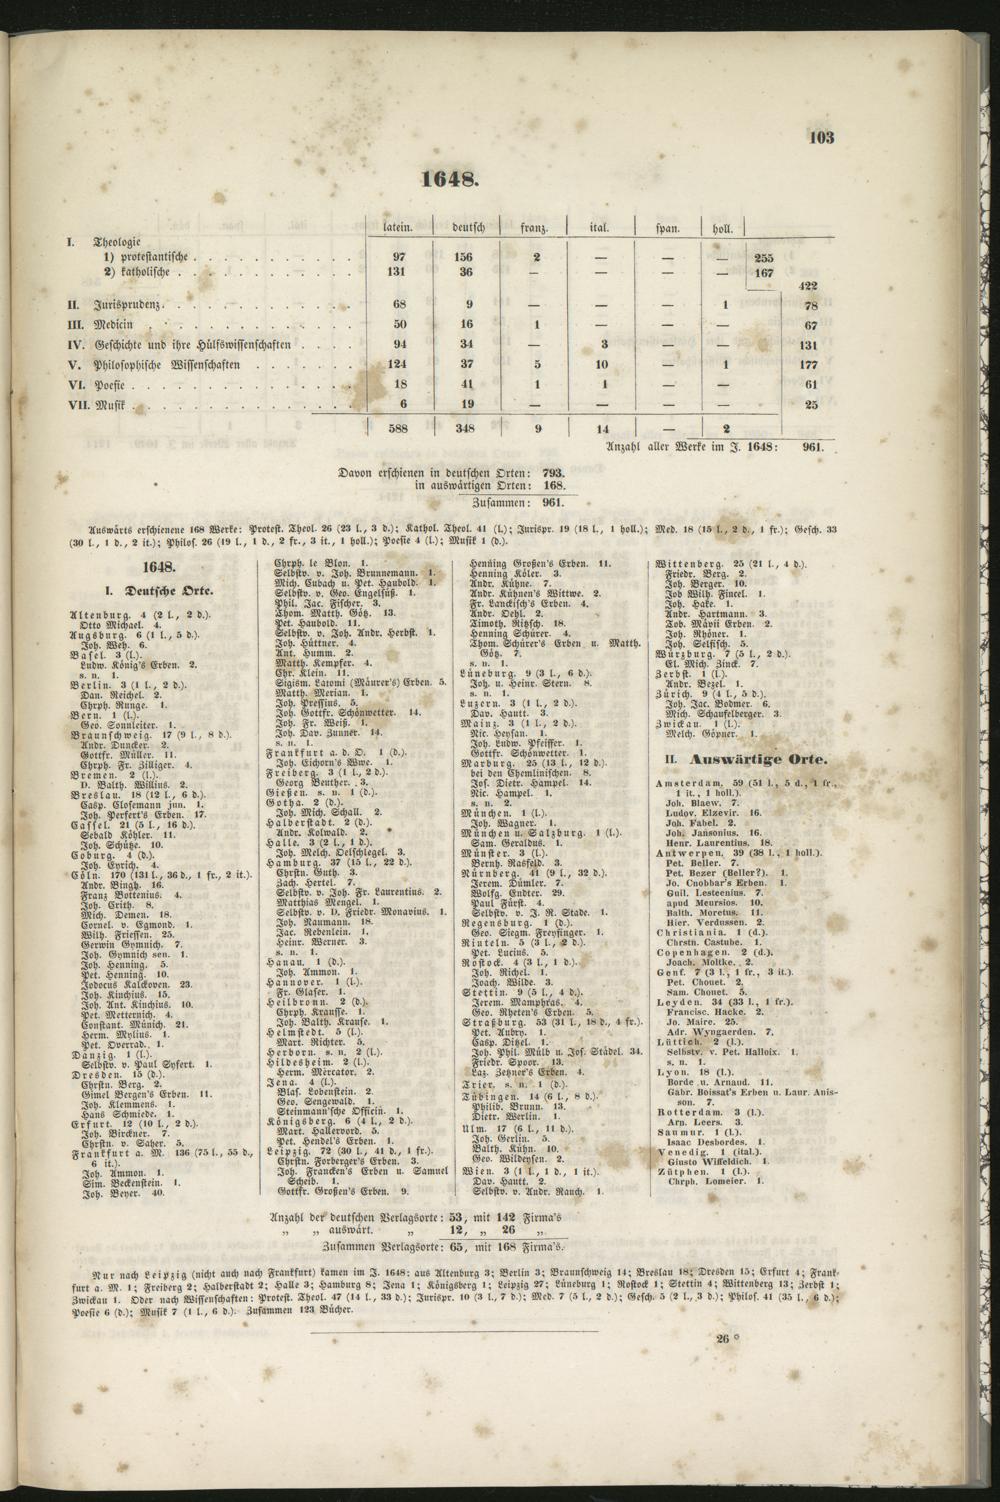 103
1648.
latein. deutsch franz. ital. span. holl.
I. Theologie
1) protestantische . . . . . . . . . . . 97 156 2 — — — 255
2) katholische . . . . . . . . . . . . 131 36 — — — — 167
422
II. Jurisprudenz. . . . . . . . . . . . . 68 9 — — — 1 78
III. Medicin . . . . . . . . . . . . . . 50 16 1 — — — 67
IV. Geschichte und ihre Hülfswissenschaften . . . . 94 34 — 3 — — 131
V. Philosophische Wissenschaften . . . . . . . 124 37 5 10 — 1 177
VI. Poesie . . . . . . . . . . . . . . . 18 41 1 1 — — 61
VII. Musik . . . . . . . . . . . . . . . 6 19 — — — — 25
588 348 9 14 — 2
Anzahl aller Werke im J. 1648: 961.
Davon erschienen in deutschen Orten: 793.
in auswärtigen Orten: 168.
Zusammen: 961.
Auswärts erschienene 168 Werke: Protest. Theol. 26 (23 l., 3 d.); Kathol. Theol. 41 (l.); Jurispr. 19 (18 l., 1 holl.); Med. 18 (15 l., 2 d., 1 fr.); Gesch. 33
(30 l., 1 d., 2 it.); Philos. 26 (19 l., 1 d., 2 fr., 3 it., 1 holl.); Poesie 4 (l.); Musik 1 (d.).
1648.
I. Deutsche Orte.
Altenburg. 4 (2 l., 2 d.).
Otto Michael. 4.
Augsburg. 6 (1 l., 5 d.).
Joh. Weh. 6.
Basel. 3 (l.).
Ludw. König's Erben. 2.
s. n. 1.
Berlin. 3 (1 l., 2 d.).
Dan. Reichel. 2.
Chrph. Runge. 1.
Bern. 1 (l.).
Geo. Sonnleiter. 1.
Braunschweig. 17 (9 l., 8 d.).
Andr. Duncker. 2.
Gottfr. Müller. 11.
Chrph. Fr. Zilliger. 4.
Bremen. 2 (l.).
D. Balth. Willius. 2.
Breslau. 18 (12 l., 6 d.).
Casp. Closemann jun. 1.
Joh. Perfert's Erben. 17.
Cassel. 21 (5 l., 16 d.).
Sebald Köhler. 11.
Joh. Schütze. 10.
Coburg. 4 (d.).
Joh. Eyrich. 4.
Cöln. 170 (131 l., 36 d., 1 fr., 2 it.).
Andr. Bingh. 16.
Franz Bottenius. 4.
Joh. Crith. 8.
Mich. Demen. 18.
Cornel. v. Egmond. 1.
Wilh. Friessen. 25.
Gerwin Gymnich. 7.
Joh. Gymnich sen. 1.
Joh. Henning. 5.
Pet. Henning. 10.
Jodocus Kalckoven. 23.
Joh. Kinchius. 15.
Joh. Ant. Kinchius. 10.
Pet. Metternich. 4.
Constant. Münich. 21.
Herm. Mylius. 1.
Pet. Overrad. 1.
Danzig. 1 (l.).
Selbstv. v. Paul Syfert. 1.
Dresden. 15 (d.).
Christn. Berg. 2.
Gimel Bergen's Erben. 11.
Joh. Klemmens. 1.
Hans Schmiede. 1.
Erfurt. 12 (10 l., 2 d.).
Joh. Birckner. 7.
Christn. v. Saher. 5.
Frankfurt a. M. 136 (75 l., 55 d.,
6 it.).
Joh. Ammon. 1.
Sim. Beckenstein. 1.
Joh. Beyer. 40.
Chrph. le Blon. 1.
Selbstv. v. Joh. Brunnemann. 1.
Mich. Cubach u. Pet. Haubold. 1.
Selbstv. v. Geo. Engelsüß. 1.
Phil. Jac. Fischer. 3.
Thom. Matth. Götz. 13.
Pet. Haubold. 11.
Selbstv. v. Joh. Andr. Herbst. 1.
Joh. Hüttner. 4.
Ant. Humm. 2.
Matth. Kempfer. 4.
Chr. Klein. 11.
Sigism. Latomi (Mäurer's) Erben. 5.
Matth. Merian. 1.
Joh. Pressius. 5.
Joh. Gottfr. Schönwetter. 14.
Joh. Fr. Weiß. 1.
Joh. Dav. Zunner. 14.
s. n. 1.
Frankfurt a. d. O. 1 (d.).
Joh. Eichorn's Wwe. 1.
Freiberg. 3 (1 l., 2 d.).
Georg Benther. 3.
Gießen. s. n. 1 (d.).
Gotha. 2 (d.).
Joh. Mich. Schall. 2.
Halberstadt. 2 (d.).
Andr. Kolwald. 2.
Halle. 3 (2 l., 1 d.).
Joh. Melch. Oelschlegel. 3.
Hamburg. 37 (15 l., 22 d.).
Christn. Guth. 3.
Zach. Hertel. 7.
Selbstv. v. Joh. Fr. Laurentius. 2.
Matthias Mengel. 1.
Selbstv. v. D. Friedr. Monavius. 1.
Joh. Naumann. 18.
Jac. Rebenlein. 1.
Heinr. Werner. 3.
s. n. 1.
Hanau. 1 (d.).
Joh. Ammon. 1.
Hannover. 1 (l.).
Fr. Glaser. 1.
Heilbronn. 2 (d.).
Chrph. Krausse. 1.
Joh. Balth. Krause. 1.
Helmstedt. 5 (l.).
Mart. Richter. 5.
Herborn. s. n. 2 (l.).
Hildesheim. 2 (l.).
Herm. Mercator. 2.
Jena. 4 (l.).
Blas. Lobenstein. 2.
Geo. Sengewald. 1.
Steinmann'sche Officin. 1.
Königsberg. 6 (4 l., 2 d.).
Mart. Hallervord. 5.
Pet. Hendel's Erben. 1.
Leipzig. 72 (30 l., 41 d., 1 fr.).
Christn. Forberger's Erben. 3.
Joh. Francken's Erben u. Samuel
Scheib. 1.
Gottfr. Großen's Erben. 9.
Henning Großen's Erben. 11.
Henning Köler. 3.
Andr. Kühne. 7.
Andr. Kühnen's Wittwe. 2.
Fr. Lanckisch's Erben. 4.
Andr. Oehl. 2.
Timoth. Ritzsch. 18.
Henning Schürer. 4.
Thom. Schürer's Erben u. Matth.
Götz. 7.
s. n. 1.
Lüneburg. 9 (3 l., 6 d.).
Joh. u. Heinr. Stern. 8.
s. n. 1.
Luzern. 3 (1 l., 2 d.).
Dav. Hautt. 3.
Mainz. 3 (1 l., 2 d.).
Nic. Heysan. 1.
Joh. Ludw. Pfeiffer. 1.
Gottfr. Schönwetter. 1.
Marburg. 25 (13 l., 12 d.).
bei den Chemlinischen. 8.
Jos. Dietr. Hampel. 14.
Nic. Hampel. 1.
s. n. 2.
München. 1 (l.).
Joh. Wagner. 1.
München u. Salzburg. 1 (l.).
Sam. Geraldus. 1.
Münster. 3 (l.).
Bernh. Raesfeld. 3.
Nürnberg. 41 (9 l., 32 d.).
Jerem. Dümler. 7.
Wolfg. Endter. 29.
Paul Fürst. 4.
Selbstv. v. J. R. Stade. 1.
Regensburg. 1 (d.).
Geo. Siegm. Freysinger. 1.
Rinteln. 5 (3 l., 2 d.).
Pet. Lucius. 5.
Rostock. 4 (3 l., 1 d.).
Joh. Richel. 1.
Joach. Wilde. 3.
Stettin. 9 (5 l., 4 d.).
Jerem. Mamphras. 4.
Geo. Rheten's Erben. 5.
Straßburg. 53 (31 l., 18 d., 4 fr.).
Pet. Aubry. 1.
Casp. Ditzel. 1.
Joh. Phil. Mülb u. Jos. Städel. 34.
Friedr. Spoor. 13.
Laz. Zetzner's Erben. 4.
Trier. s. n. 1 (d.).
Tübingen. 14 (6 l., 8 d.).
Philib. Brunn. 13.
Dietr. Werlin. 1.
Ulm. 17 (6 l., 11 d.).
Joh. Gerlin. 5.
Balth. Kühn. 10.
Geo. Wildeysen. 2.
Wien. 3 (1 l., 1 d., 1 it.).
Dav. Hautt. 2.
Selbstv. v. Andr. Rauch. 1.
Wittenberg. 25 (21 l., 4 d.).
Friedr. Berg. 2.
Joh. Berger. 10.
Job Wilh. Fincel. 1.
Joh. Hake. 1.
Andr. Hartmann. 3.
Tob. Mävii Erben. 2.
Joh. Rhöner. 1.
Joh. Selfisch. 5.
Würzburg. 7 (5 l., 2 d.).
El. Mich. Zinck. 7.
Zerbst. 1 (l.).
Andr. Bezel. 1.
Zürich. 9 (4 l., 5 d.).
Joh. Jac. Bodmer. 6.
Mich. Schaufelberger. 3.
Zwickau. 1 (l.).
Melch. Göpner. 1.
II. Auswärtige Orte.
Amsterdam. 59 (51 l., 5 d., 1 fr.,
1 it., 1 holl.).
Joh. Blaew. 7.
Ludov. Elzevir. 16.
Joh. Fabel. 2.
Joh. Jansonius. 16.
Henr. Laurentius. 18.
Antwerpen. 39 (38 l., 1 holl.).
Pet. Beller. 7.
Pet. Bezer (Beller?). 1.
Jo. Cnobbar's Erben. 1.
Guil. Lesteenius. 7.
apud Meursios. 10.
Balth. Moretus. 11.
Hier. Verdussen. 2.
Christiania. 1 (d.).
Chrstn. Castube. 1.
Copenhagen. 2 (d.).
Joach. Moltke. 2.
Genf. 7 (3 l., 1 fr., 3 it.).
Pet. Chouet. 2.
Sam. Chouet. 5.
Leyden. 34 (33 l., 1 fr.).
Francisc. Hacke. 2.
Jo. Maire. 25.
Adr. Wyngaerden. 7.
Lüttich. 2 (l.).
Selbstv. v. Pet. Halloix. 1.
s. n. 1.
Lyon. 18 (l.).
Borde u. Arnaud. 11.
Gabr. Boissat's Erben u. Laur Anis-
son. 7.
Rotterdam. 3 (l.).
Arn. Leers. 3.
Saumur. 1 (l.).
Isaac Desbordes. 1.
Venedig. 1 (ital.).
Giusto Wiffeldich. 1.
Zütphen. 1 (l.).
Chrph. Lomeier. 1.
Anzahl der deutschen Verlagsorte: 53, mit 142 Firma's
„ „ auswärt. „ 12, „ 26 „
Zusammen Verlagsorte: 65, mit 168 Firma's.
Nur nach Leipzig (nicht auch nach Frankfurt) kamen im J. 1648: aus Altenburg 3; Berlin 3; Braunschweig 14; Breslau 18; Dresden 15; Erfurt 4; Frank-
furt a. M. 1; Freiberg 2; Halberstadt 2; Halle 3; Hamburg 8; Jena 1; Königsberg 1; Leipzig 27; Lüneburg 1; Rostock 1; Stettin 4; Wittenberg 13; Zerbst 1;
Zwickau 1. Oder nach Wissenschaften: Protest. Theol. 47 (14 l., 33 d.); Jurispr. 10 (3 l., 7 d.); Med. 7 (5 l., 2 d.); Gesch. 5 (2 l., 3 d.); Philos. 41 (35 l., 6 d.);
Poesie 6 (d.); Musik 7 (1 l., 6 d.). Zusammen 123 Bücher.
26 *